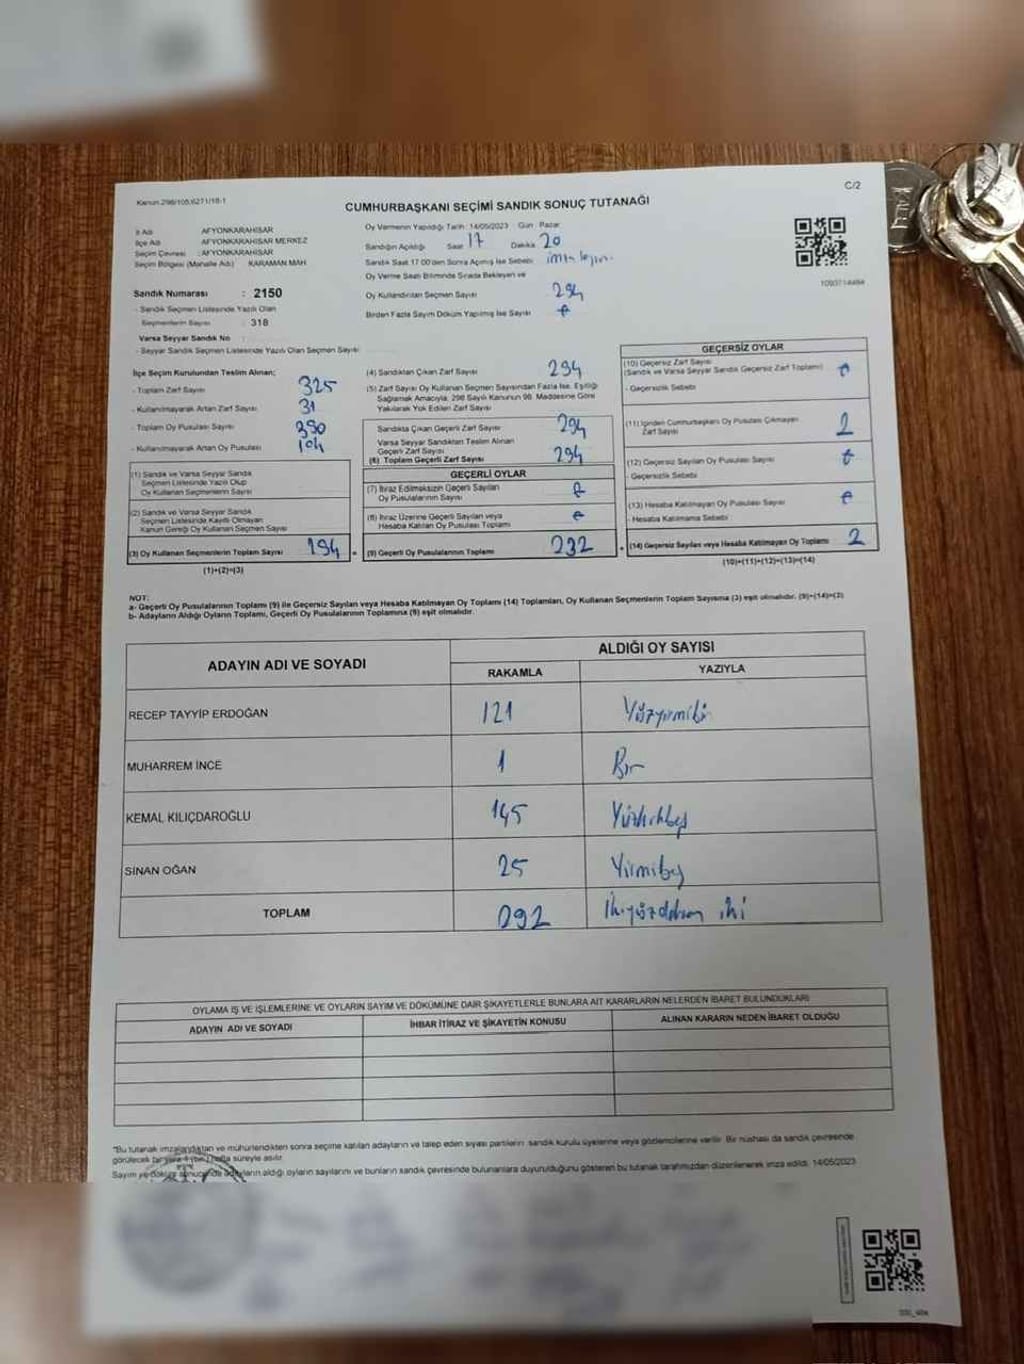 Kanun.298/105;6271/18-1
C/2
CUMHURBAŞKANI SEÇİMİ SANDIK SONUÇ TUTANAĞI
İl Adı : AFYONKARAHİSAR
İlçe Adı : AFYONKARAHİSAR MERKEZ
Seçim Çevresi : AFYONKARAHİSAR
Seçim Bölgesi (Mahalle Adı) : KARAMAN MAH
Sandık Numarası : 2150
- Sandık Seçmen Listesinde Yazılı Olan
Seçmenlerin Sayısı : 318
Varsa Seyyar Sandık No :
- Seyyar Sandık Seçmen Listesinde Yazılı Olan Seçmen Sayısı:
Oy Vermenin Yapıldığı Tarih :14/05/2023 Gün :Pazar
Sandığın Açıldığı Saat 17 Dakika 20
Sandık Saat 17:00'den Sonra Açılmış İse Sebebi
Oy Verme Saati Bitiminde Sırada Bekleyen ve
Oy Kullandırılan Seçmen Sayısı 294
Birden Fazla Sayım Döküm Yapılmış İse Sayısı
İlçe Seçim Kurulundan Teslim Alınan;
- Toplam Zarf Sayısı 325
- Kullanılmayarak Artan Zarf Sayısı 31
- Toplam Oy Pusulası Sayısı 390
- Kullanılmayarak Artan Oy Pusulası 104
(1) Sandık ve Varsa Seyyar Sandık
Seçmen Listesinde Yazılı Olup
Oy Kullanan Seçmenlerin Sayısı
(2) Sandık ve Varsa Seyyar Sandık
Seçmen Listesinde Kayıtlı Olmayan
Kanun Gereği Oy Kullanan Seçmen Sayısı
(3) Oy Kullanan Seçmenlerin Toplam Sayısı 194
(1)+(2)=(3)
(4) Sandıktan Çıkan Zarf Sayısı 294
(5) Zarf Sayısı Oy Kullanan Seçmen Sayısından Fazla İse, Eşitliği
Sağlamak Amacıyla, 298 Sayılı Kanunun 98. Maddesine Göre
Yakılarak Yok Edilen Zarf Sayısı
Sandıkta Çıkan Geçerli Zarf Sayısı 294
Varsa Seyyar Sandıktan Teslim Alınan
Geçerli Zarf Sayısı
(6) Toplam Geçerli Zarf Sayısı 294
GEÇERLİ OYLAR
(7) İtiraz Edilmeksizin Geçerli Sayılan
Oy Pusulalarının Sayısı
(8) İtiraz Üzerine Geçerli Sayılan veya
Hesaba Katılan Oy Pusulası Toplamı
= (9) Geçerli Oy Pusulalarının Toplamı 292
GEÇERSİZ OYLAR
(10) Geçersiz Zarf Sayısı
(Sandık ve Varsa Seyyar Sandık Geçersiz Zarf Toplamı)
- Geçersizlik Sebebi
(11) İçinden Cumhurbaşkanı Oy Pusulası Çıkmayan
Zarf Sayısı 2
(12) Geçersiz Sayılan Oy Pusulası Sayısı
- Geçersizlik Sebebi
(13) Hesaba Katılmayan Oy Pusulası Sayısı
- Hesaba Katılmama Sebebi
+ (14) Geçersiz Sayılan veya Hesaba Katılmayan Oy Toplamı 2
(10)+(11)+(12)+(13)=(14)
NOT:
a- Geçerli Oy Pusulalarının Toplamı (9) ile Geçersiz Sayılan veya Hesaba Katılmayan Oy Toplamı (14) Toplamları, Oy Kullanan Seçmenlerin Toplam Sayısına (3) eşit olmalıdır. (9)+(14)=(3)
b- Adayların Aldığı Oyların Toplamı, Geçerli Oy Pusulalarının Toplamına (9) eşit olmalıdır.
ADAYIN ADI VE SOYADI
ALDIĞI OY SAYISI
RAKAMLA YAZIYLA
RECEP TAYYİP ERDOĞAN 121 Yüzyirmibir
MUHARREM İNCE 1 Bir
KEMAL KILIÇDAROĞLU 145 Yüzkırkbeş
SİNAN OĞAN 25 Yirmibeş
TOPLAM 292 İkiyüzdoksan iki
OYLAMA İŞ VE İŞLEMLERİNE VE OYLARIN SAYIM VE DÖKÜMÜNE DAİR ŞİKAYETLERLE BUNLARA AİT KARARLARIN NELERDEN İBARET BULUNDUKLARI
ADAYIN ADI VE SOYADI İHBAR İTİRAZ VE ŞİKAYETİN KONUSU ALINAN KARARIN NEDEN İBARET OLDUĞU
"Bu tutanak imzalandıktan ve mühürlendikten sonra seçime katılan adayların ve talep eden siyasi partilerin sandık kurulu üyelerine veya gözlemcilerine verilir. Bir nüshası da sandık çevresinde
görülecek bir yere 1 (bir) hafta süreyle asılır.
Sayım ve döküm sonucunda adayların aldığı oyların sayılarını ve bunların sandık çevresinde bulunanlara duyurulduğunu gösteren bu tutanak tarafımızdan düzenlenerek imza edildi. 14/05/2023